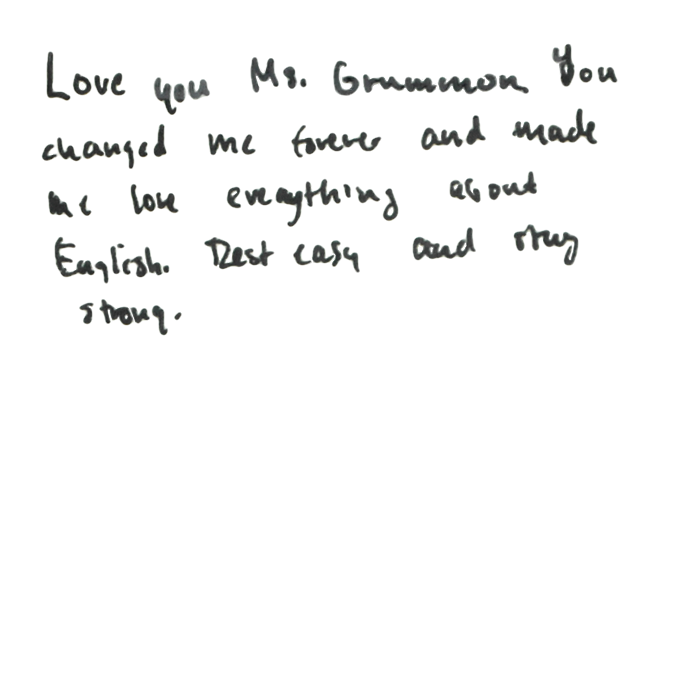 Love you Ms. Grummon You
changed me forever and made
me love everything about
English. Rest easy and stay
strong.